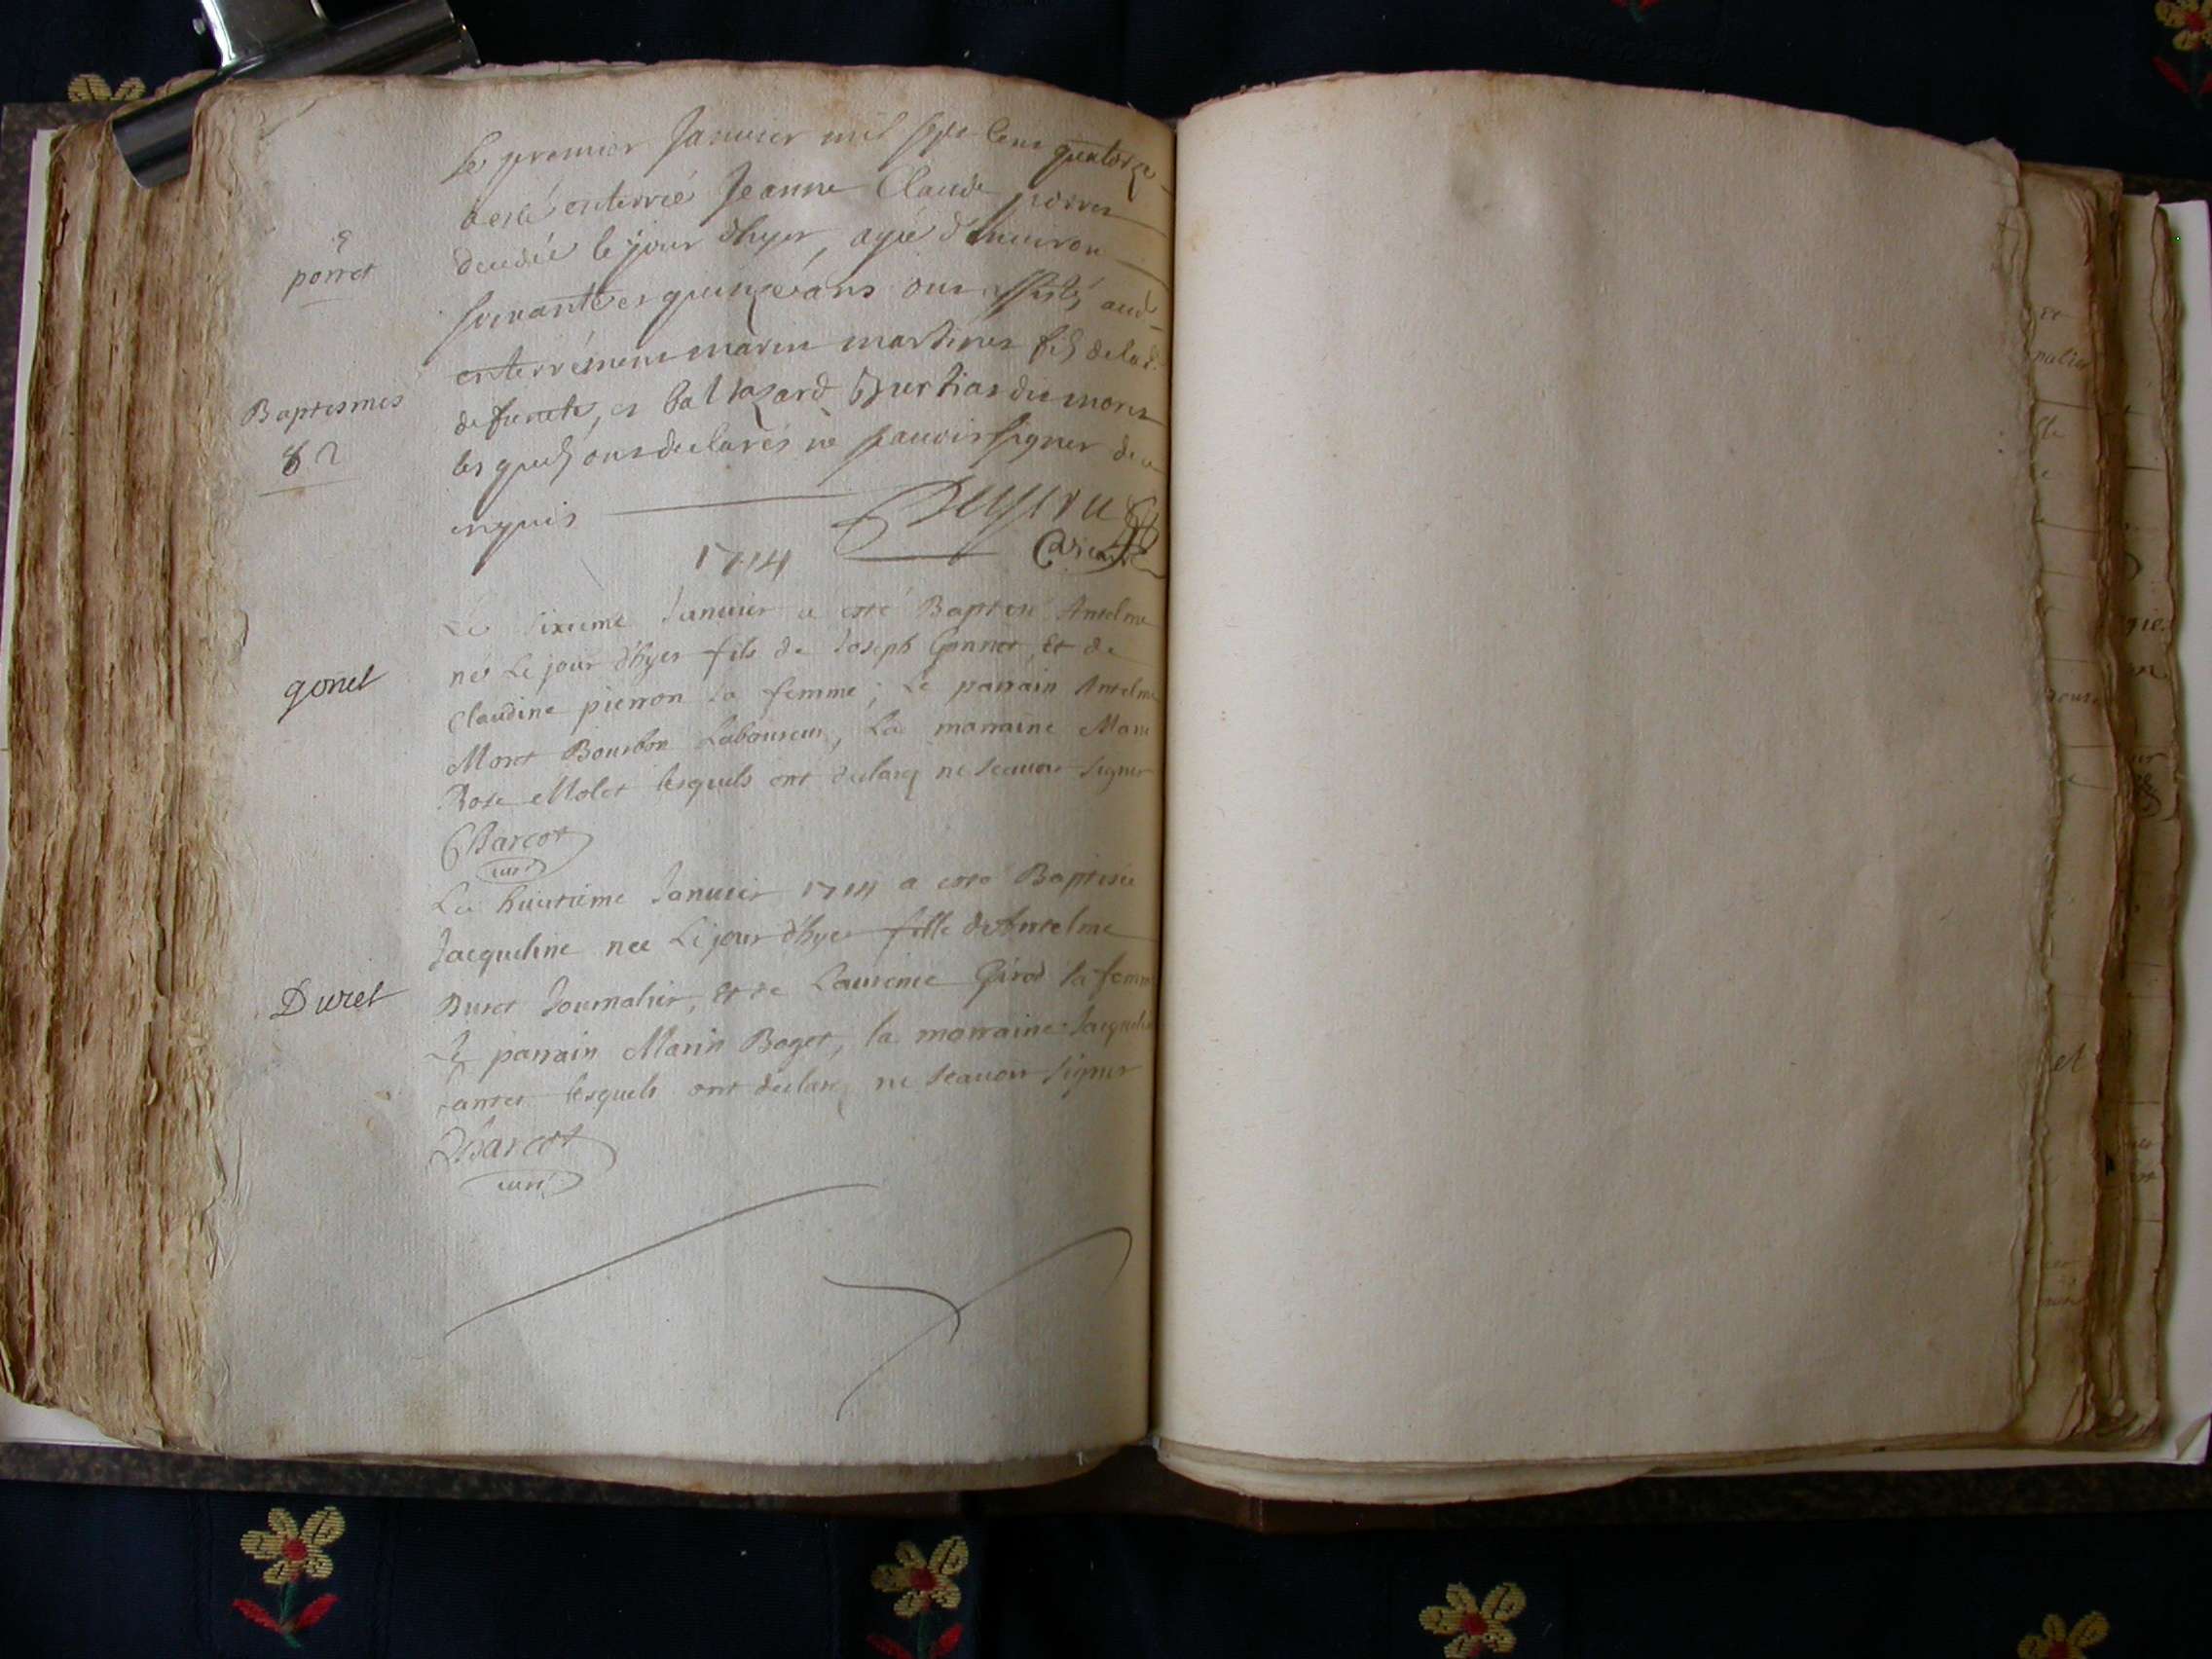 Le premier Januier mil sept cens quatorze
a esté enterrée Jeanne Claude porret
porret
decedée le jour d'hyer, agée d'enuiron
soixante et quinze ans ont assistés aud
enterrement marin martinet fils de lad.
Baptesmes
defuncte, et Baltazard du mont
82
lesquels ont declarés ne sçauoir signer de ce
enquis
1714
Le sixieme Januier a esté Baptisé Antelme
gonet
né Le jour d'hyer fils de Joseph Gonnet, Et de
Claudine pierron sa femme; Le parrain Antelme
Moret Bourbon Laboureur, La marraine Marie
Rose Molet lesquels ont declaré ne sçauoir signer
Charcot
curé
Le huictieme Januier 1714 a esté Baptisée
Jacqueline née Le jour d'hyer fille de Antelme
Duret
Duret Journalier, Et de Laurence Girod sa femme
Le parrain Marin Boget, la marraine Jacqueline
lesquels ont declaré ne sçauoir signer
Charcot
curé